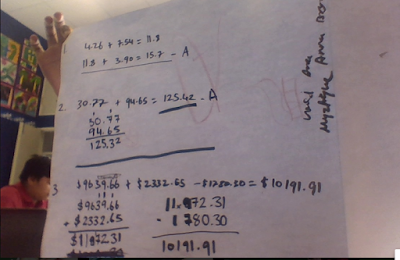 1.
4.26 + 7.54 = 11.8
11.8 + 3.90 = 15.7 - A
2. 30.77 + 94.65 = 125.42 - A
30.77
94.65
125.32
3
$9639.66 + $2332.65 - $1780.30 = $10191.91
$9639.66
+ $2332.65
$11972.31
11.972.31
- 1780.30
10191.91